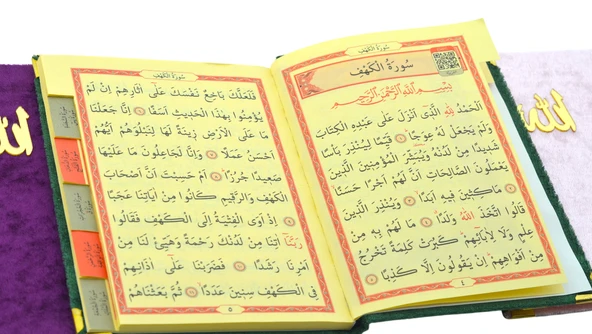 سُورَةُ الْكَهْفِ
سُورَةُ الْكَهْفِ
بِسْمِ اللّٰهِ الرَّحْمٰنِ الرَّحِيمِ
اَلْحَمْدُ لِلّٰهِ الَّذٖى اَنْزَلَ عَلٰى عَبْدِهِ الْكِتَابَ
وَلَمْ يَجْعَلْ لَهُ عِوَجًا ۞ قَيِّمًا لِيُنْذِرَ بَاْسًا
شَدٖيدًا مِنْ لَدُنْهُ وَيُبَشِّرَ الْمُؤْمِنٖينَ الَّذٖينَ
يَعْمَلُونَ الصَّالِحَاتِ اَنَّ لَهُمْ اَجْرًا حَسَنًا
۞ مَاكِثٖينَ فٖيهِ اَبَدًا ۞ وَيُنْذِرَ الَّذٖينَ
قَالُوا اتَّخَذَ اللّٰهُ وَلَدًا ۞ مَا لَهُمْ بِهٖ مِنْ
عِلْمٍ وَلَا لِاٰبَائِهِمْ كَبُرَتْ كَلِمَةً تَخْرُجُ
مِنْ اَفْوَاهِهِمْ اِنْ يَقُولُونَ اِلَّا كَذِبًا ۞
٤
سُورَةُ الْكَهْفِ
فَلَعَلَّكَ بَاخِعٌ نَفْسَكَ عَلٰى اٰثَارِهِمْ اِنْ لَمْ
يُؤْمِنُوا بِهٰذَا الْحَدٖيثِ اَسَفًا ۞ اِنَّا جَعَلْنَا
مَا عَلَى الْاَرْضِ زٖينَةً لَهَا لِنَبْلُوَهُمْ اَيُّهُمْ
اَحْسَنُ عَمَلًا ۞ وَاِنَّا لَجَاعِلُونَ مَا عَلَيْهَا
صَعٖيدًا جُرُزًا ۞ اَمْ حَسِبْتَ اَنَّ اَصْحَابَ
الْكَهْفِ وَالرَّقٖيمِ كَانُوا مِنْ اٰيَاتِنَا عَجَبًا
۞ اِذْ اَوَى الْفِتْيَةُ اِلَى الْكَهْفِ فَقَالُوا
رَبَّنَا اٰتِنَا مِنْ لَدُنْكَ رَحْمَةً وَهَيِّئْ لَنَا مِنْ
اَمْرِنَا رَشَدًا ۞ فَضَرَبْنَا عَلٰى اٰذَانِهِمْ
فِى الْكَهْفِ سِنٖينَ عَدَدًا ۞ ثُمَّ بَعَثْنَاهُمْ
٥
الله
الله